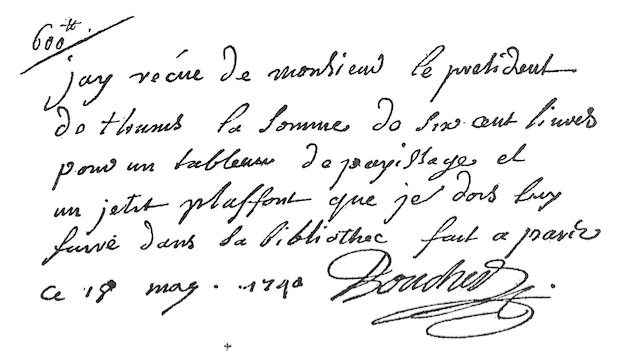 600ᵗᵗ.
jay recue de monsieur le president
de thums la somme de six cent liures
pour un tableau de payissage et
un petit plaffont que je dois luy
faire dans sa bibliothec fait a paris
ce 18 may. 1740 Boucher